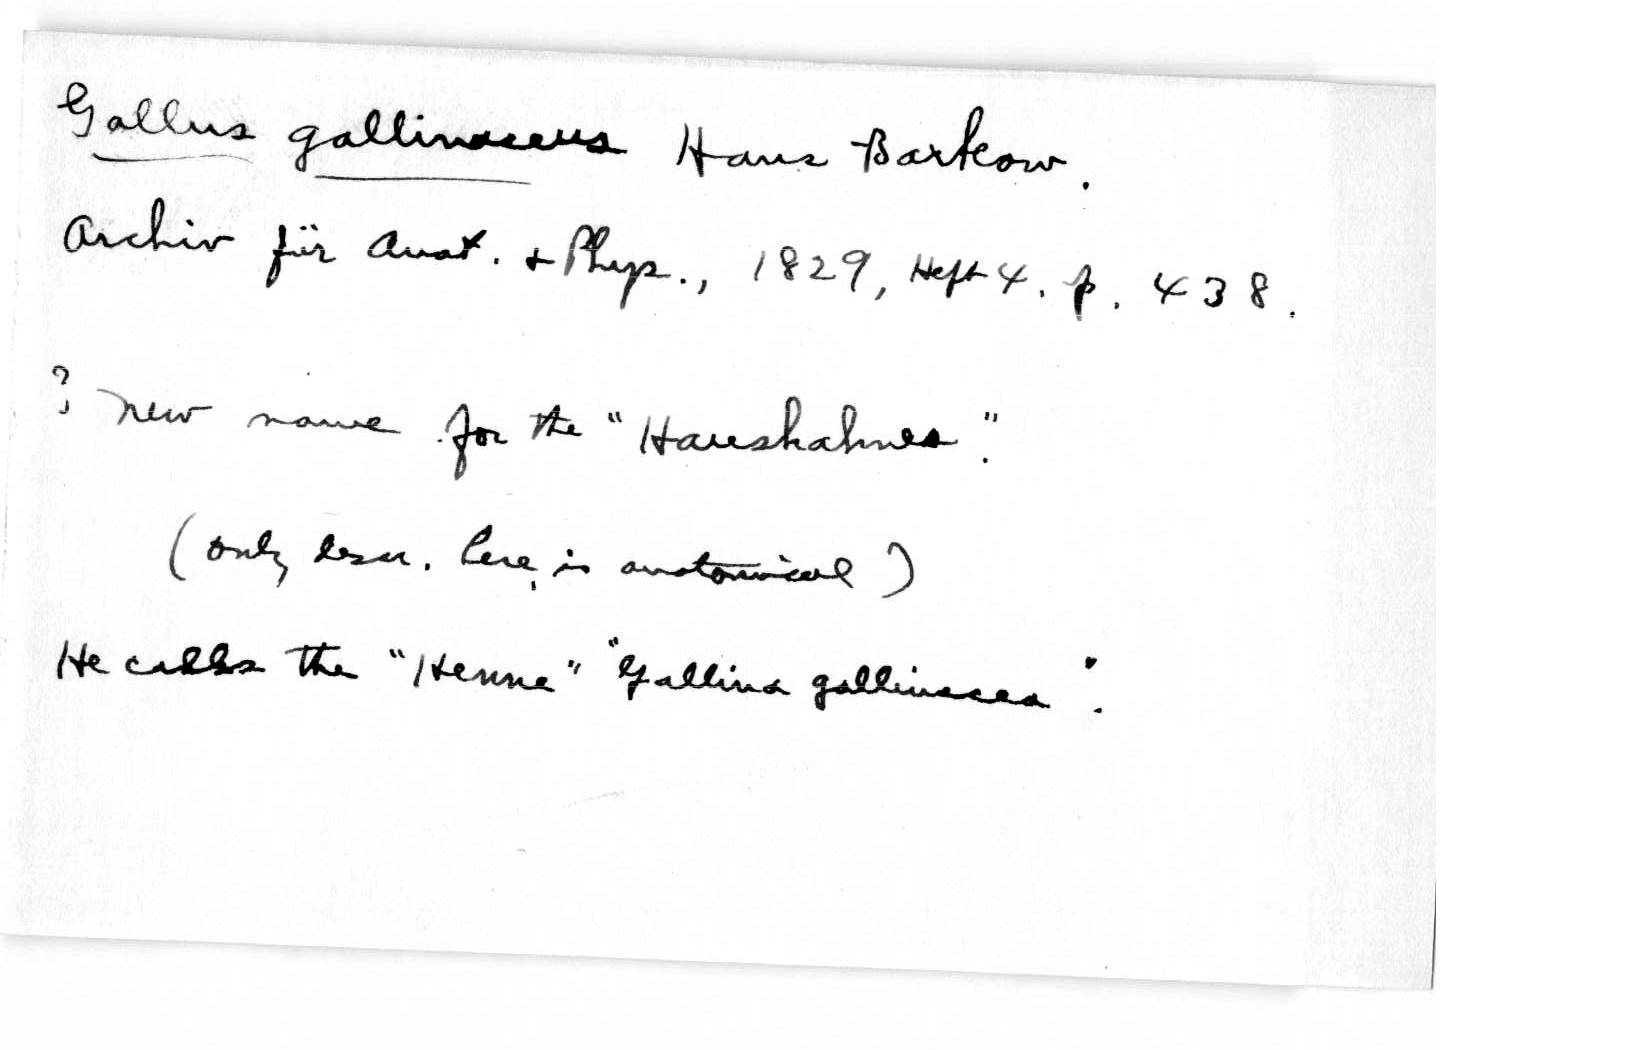 Gallus gallinaceus Hans Barkow.
Archiv für Anat. + Phys., 1829, Heft 4. p. 438.
? New name for the "Haushahnes".
(only descr. here, is anatomical)
He calls the "Henne" "Gallina gallinacea".